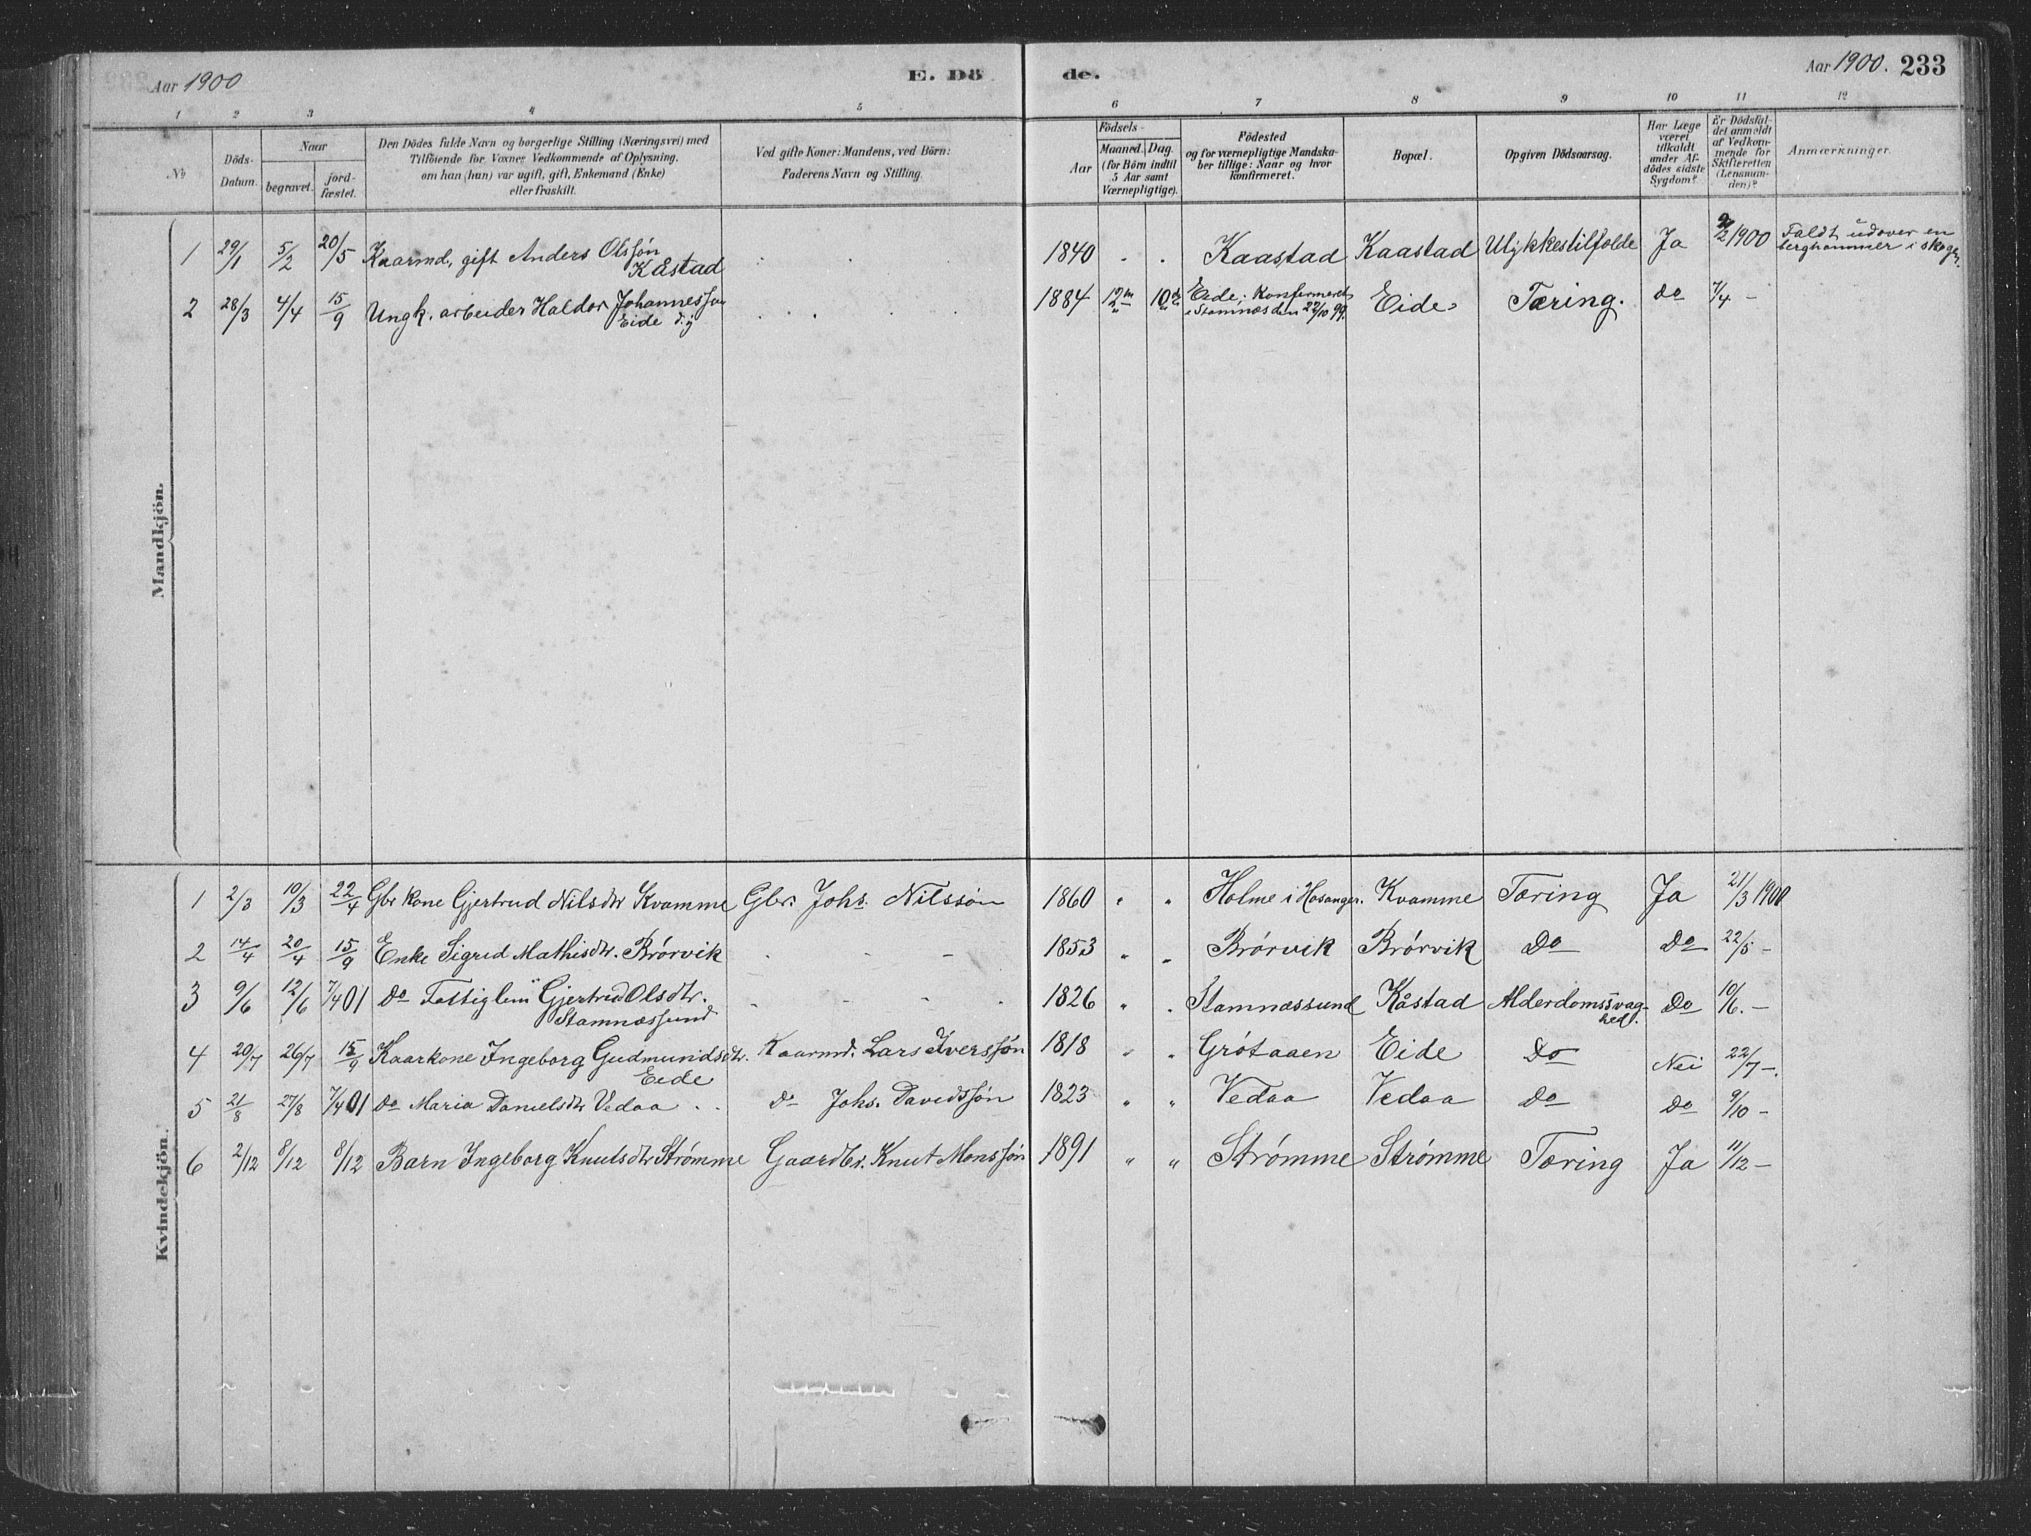 Aar 1900 E. Dö de. Aar 1900. 233
1 2 3 4 5 6 7 8 9 10 11 12
No
Döds-
Datum.
Naar
begravet.
jord-
fæstet.
Den Dödes fulde Navn og borgerlige Stilling (Næringsvei) med
Tilföiende for Voxne Vedkommende af Oplysning,
om han (hun) var ugift, gift, Enkemand (Enke)
eller fraskilt.
Ved gifte Koner: Mandens, ved Börn:
Faderens Navn og Stilling.
Födsels-
Aar
Maaned. Dag.
(for Börn indtil
5 Aar samt
Værnepligtige).
Födested
og for værnepligtige Mandska-
ber tillige: Naar og hvor
konfirmeret.
Bopæl.
Opgiven Dödsaarsag.
Har Læge
været
tilkaldt
under Af-
dödes sidste
Sygdom?
Er Dödsfal-
det anmeldt
af Vedkom-
mende for
Skifteretten
(Lensman-
den)?
Anmærkninger.
Mandkjön.
1 29/1 5/2 20/5 Kaarmd, gift Anders Olssøn 1840 Kaastad Kaastad Ulykkestilfælde Ja 9/2 1900 Faldt udover en
Kåstad berghammer i skogen.
2 28/3 4/4 15/9 Ungk. arbeider Haldor Johannessøn 1884 12 m 10 de Eide, Konfirmeret Eide Tæring. do 7/4 -
Eide i Stamnæs den 22/10 99.
Kvindekjön.
1 2/3 10/3 22/4 Gbr kone Gjertrud Nilsdtr Kvamme Gbr. Johs. Nilssøn 1860 " " Holme i Hosanger. Kvamme Tæring Ja 21/3 1900
2 14/4 20/4 15/9 Enke Sigrid Mathisdtr. Brørvik - - - 1853 " " Brørvik Brørvik Do Do 22/5 -
3 9/6 12/6 7/4 01 do Fattiglem Gjertrud Olsdtr. - - - 1826 " " Stamnæssund Kåstad Alderdomssvag- Do 10/6. -
Stamnæssund hed.
4 20/7 26/7 15/9 Kaarkone Ingeborg Gudmundsdtr. Kaarmd. Lars Iverssøn 1818 " " Grøtaaen Eide Do Nei 22/7 -.
Eide
5 21/8 27/8 7/4 01 do Maria Danielsdtr Vedaa do Johs. Davidssøn 1823 " " Vedaa Vedaa Do Do 9/10 -
6 2/12 8/12 8/12 Barn Ingeborg Knutsdtr Strømme Gaardbr. Knut Monssøn 1891 " " Strømme Strømme Tæring Ja 11/12 -